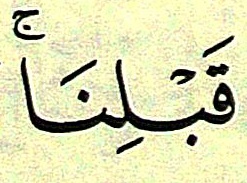 قَبْلِنَاۚ